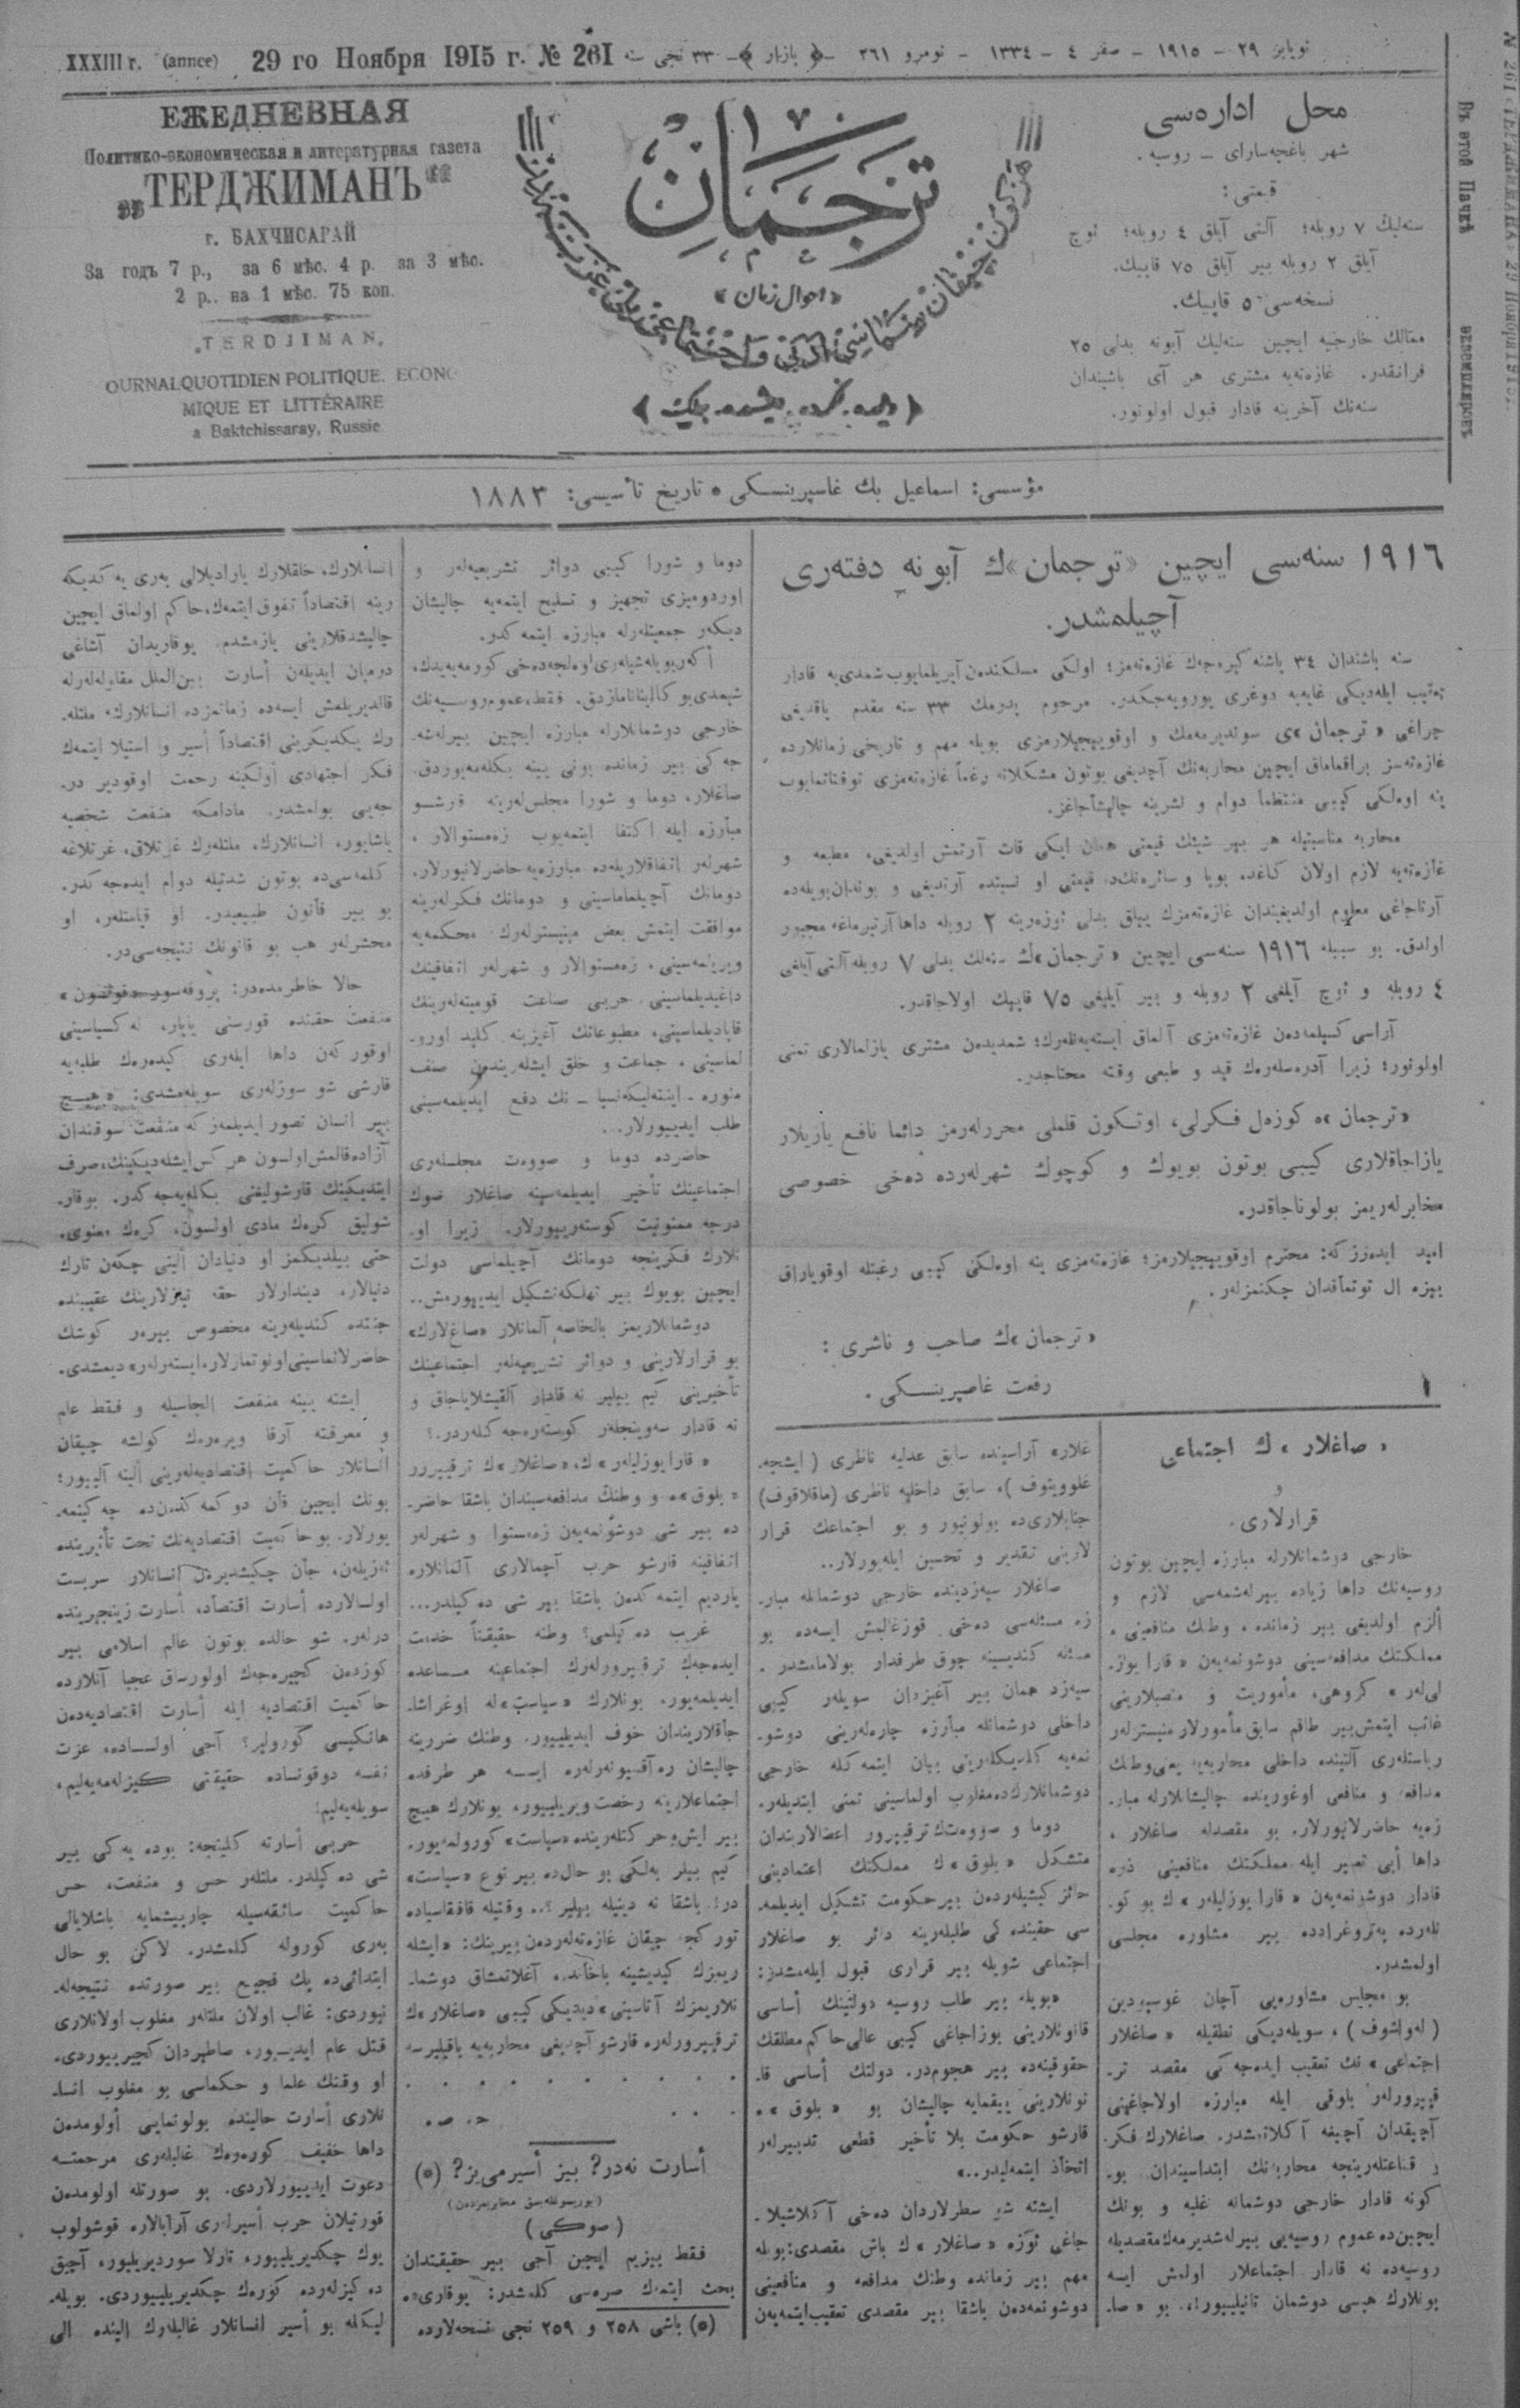 XXXIII г. (annee) 29 го Ноября 1915 г. № 261
نويابر ٢٩ – ١٩١٥ – صفر ٤ – ١٣٣٤ – نومرو ٢٦١ –﴿ بازار ﴾– ٣٣ نجی سنه
ЕЖЕДНЕВНАЯ
Политико-экономическая и литературная газета
„ТЕРДЖИМАНЪ“
г. БАХЧИСАРАЙ
За годъ 7 р., за 6 мѣс. 4 р. за 3 мѣс.
2 р.. на 1 мѣс. 75 коп.
„TERDJIMAN„
OURNAL QUOTIDIEN POLITIQUE. ECONO
MIQUE ET LITTÉRAIRE
a Baktchissaray, Russie
ترجمان
«احوال زمان»
﴿ديلده، فكرده، ايشده بيرلك﴾
محل اداره‌سی
شهر باغچه‌سارای – روسيه.
قيمتی:
سنه‌ليك ٧ روبله؛ آلتی آيلق ٤ روبله؛ ئوچ
آيلق ٢ روبله بير آيلق ٧٥ قاپيك.
نسخه‌سی ٥ قاپيك.
ممالك خارجيه ايچين سنه‌ليك آبونه بدلی ٢٥
فرانقدر. غازه‌ته‌يه مشتری هر آی باشيندان
سنه‌نك آخرينه قادار قبول اولونور.
Въ этой Пачкѣ экземпляровъ
№ 261 «ТЕРДЖИМАНЪ» 29 Ноября 1915 г.
مؤسسی: اسماعيل بك غاسپرينسكی * تاريخ تأسيسی: ١٨٨٣
١٩١٦ سنه‌سی ايچين «ترجمان»ك آبونه دفته‌ری
آچيلمشدر.
سنه باشندان ٣٤ ياشنه كيره‌جك غازه‌ته‌مز؛ اولكی مسلكندن آيريلمايوب شمدی‌يه قادار
تعقيب ايله‌ديكی غايه‌يه دوغری يورويه‌جكدر. مرحوم پدرمك ٣٣ سنه مقدم ياقديغی
چراغی «ترجمان»ی سونديرمه‌مك و اوقويیجيلارمزی بويله مهم و تاريخی زمانلارده
غازه‌ته‌سز براقماماق ايچين محاربه‌نك آچديغی بوتون مشكلاته رغماً غازه‌ته‌مزی توقتاتمايوب
ينه اوه‌لكی كيبی منتظماً دوام و نشرينه چاليشاجاغز.
محاربه مناسبتيله هر بير شيئك قيمتی همان ايكی قات آرتمش اولديغی، مطبعه و
غازه‌ته‌يه لازم اولان كاغد، بويا و سائره‌نك‌ده قيمتی او نسبتده آرتديغی و بوندان‌بويله‌ده
آرتاجاغی معلوم اولديغيندان غازه‌ته‌مزك ييللق بدلی ئوزه‌رينه ٢ روبله داها آرتيرماغه مجبور
اولدق. بو سببله ١٩١٦ سنه‌سی ايچين «ترجمان»ك سنه‌لك بدلی ٧ روبله آلتی آيلغی
٤ روبله و ئوچ آيلغی ٢ روبله و بير آيليغی ٧٥ قاپيك اولاجاقدر.
آراسی كسيلمه‌دن غازه‌ته‌مزی آلماق ايسته‌يه‌نله‌رك؛ شمديدن مشتری يازلمالاری تمنی
اولونور؛ زيرا آدره‌سله‌رك قيد و طبعی وقته محتاجدر.
«ترجمان»ه كوزه‌ل فكرلی، اوتكون قلملی محررله‌رمز دائما نافع يازيلار
يازاجاقلاری كيبی بوتون بويوك و كوچوك شهرله‌رده ده‌خی خصوصی
مخابرله‌ريمز بولوناجاقدر.
اميد ايده‌رز كه: محترم اوقويیجيلارمز؛ غازه‌ته‌مزی ينه اوه‌لكی كيبی رغبتله اوقوياراق
بيزه ال توتماقدان چكنمزله‌ر.
«ترجمان»ك صاحب و ناشری :
رفعت غاصپرينسكی.
«صاغلار»ك اجتماعی
و
قرارلاری.
خارجی دوشمانلارله مبارزه ايچين بوتون
روسيه‌نك داها زياده بيرله‌شمه‌سی لازم و
ألزم اولديغی بير زمانده، وطنك منافعينی،
مملكتك مدافعه‌سينی دوشونمه‌يه‌ن «قارا يوز-
لی‌لەر» كروهی، مأموريت و منصبلارينی
غائب ايتمش بير طاقم سابق مأمورلار، مينيسترله‌ر
رياستله‌ری آلتينده داخلی محاربه‌يه يعنی وطنك
مدافعه و منافعی اوغورينده چاليشانلارله مبار-
زه‌يه حاضرلانيورلار. بو مقصدله صاغلار،
داها أيی تعبير ايله مملكتك منافعينی ذره
قادار دوشونمه‌يه‌ن «قارا يوزليله‌ر»ك بو كو-
نله‌رده په‌تروغرادده بير مشاوره مجلسی
اولمشدر.
بو مجلس مشاوره‌یی آچان غوسپودين
(له‌واشوف)، سويله‌ديكی نطقيله «صاغلار
اجتماعی»نك تعقيب ايده‌جه‌كی مقصد تر-
قيپرورله‌ر بلوقی ايله مبارزه اولاجاغينی
آچيقدان آچيغه آكلاتمشدر. صاغلارك فكر
و قناعتله‌رينجه محاربه‌نك ابتداسيندان بو-
كونه قادار خارجی دوشمانه غلبه و بونك
ايچين‌ده عموم روسيه‌یی بيرله‌شديرمه‌ك مقصديله
روسيه‌ده نه قادار اجتماعلار اولمش ايسه
بونلارك هپسی دوشمان تانيليیور!.. بو «صا-
غلار» آراسينده سابق عدليه ناظری (ايشچه-
غلوويتوف)، سابق داخليه ناظری (ماقلاقوف)
جنابلاری‌ده بولونيور و بو اجتماعك قرار
لارينی تقدير و تحسين ايله‌يورلار..
صاغلار سيه‌زدينده خارجی دوشمانله مبار-
زه مسئله‌سی ده‌خی قوزغالمش ايسه‌ده بو
مسئله كنديسينه چوق طرفدار بولامامشدر.
سيه‌زد همان بير آغيزدان سويله‌ر كيبی
داخلی دوشمانله مبارزه چاره‌له‌رينی دوشو-
نمه‌يه كلديكله‌رينی بيان ايتمه‌كله خارجی
دوشمانلارك‌ده مغلوب اولماسينی تمنی ايتديله‌ر.
دوما و صووه‌ت‌ك ترقيپرور اعضالاريندان
متشكل «بلوق»ك مملكتك اعتمادينی
حائز كيشيله‌ردن بير حكومت تشكيل ايديلمه-
سی حقينده كی طلبله‌رينه دائر بو صاغلار
اجتماعی شويله بير قراری قبول ايله‌مشدر:
«بويله بير طلب روسيه دولتينك أساسی
قانونلارينی بوزاجاغی كيبی عالی حاكم مطلقك
حقوقينه‌ده بير هجوم‌در. دولتك أساسی قا-
نونلارينی ييقمايه چاليشان بو «بلوق»ه
قارشو حكومت بلا تأخير قطعی تدبيرله‌ر
اتخاذ ايتمه‌ليدر..»
ايشته شو سطرلاردان ده‌خی آكلاشيلا-
جاغی ئوزه «صاغلار»ك باش مقصدی: بويله
مهم بير زمانده وطنك مدافعه و منافعينی
دوشونمه‌دن باشقا بير مقصدی تعقيب ايتمه‌يه‌ن
دوما و شورا كيبی دوائر تشريعيه‌له‌ر و
اوردوميزی تجهيز و تسليح ايتمه‌يه چاليشان
ديكه‌ر جمعيتله‌رله مبارزه ايتمه كدر.
أكه‌ر بويله شيله‌ری اوه‌لجه‌ده‌خی كورمه‌يه‌يدك،
شيمدی بو كا اينانامازدق. فقط، عموم روسيه‌نك
خارجی دوشمانلارله مبارزه ايچين بيرله‌شه-
جه‌كی بير زمانده بونی يينه بكله‌مه‌يوردق.
صاغلار، دوما و شورا مجلس‌له‌رينه قارشو
مبارزه ايله اكتفا ايتمه‌يوب زه‌مستوالار،
شهرله‌ر اتفاقلاريله‌ده مبارزه‌يه حاضرلانيورلار.
دومانك آچيلماماسينی و دومانك فكرله‌رينه
موافقت ايتمش بعض مينيستر‌له‌رك محكمه‌يه
ويريلمه‌سينی، زه‌مستوالار و شهرله‌ر اتفاقينك
داغيديلماسينی، حربی صناعت قوميته‌له‌رينك
قاپاديلماسينی، مطبوعاتك آغيزينه كليد اورو-
لماسينی، جماعت و خلق ايشله‌ريندن صنف
منوره – اينته‌ليكه‌نسيا – نك دفع ايديلمه‌سينی
طلب ايديیورلار...
حاضرده دوما و صووه‌ت مجلسله‌ری
اجتماعينك تأخير ايديلمه‌سينه صاغلار صوك
درجه ممنونيت كوسته‌ريیورلار. زيرا او-
نلارك فكرينجه دومانك آچيلماسی دولت
ايچين بويوك بير تهلكه تشكيل ايديیورمش..
دوشمانلاريمز بالخاصه آلمانلار «صاغلارك»
بو قرارلارينی و دوائر تشريعيه‌له‌ر اجتماعينك
تأخيرينی كيم بيلير نه قادار آلقيشلاياجاق و
نه قادار سه‌وينجله‌ر كوسته‌ره‌جه كله‌ردر.؟
«قارا يوزليله‌ر»ك، «صاغلار»ك ترقيپرور
«بلوق»ه و وطنك مدافعه‌سيندان باشقا حاضر-
ده بير شی دوشونمه‌يه‌ن زه‌مستوا و شهرله‌ر
اتفاقينه قارشو حرب آچمالاری آلمانلاره
يارديم ايتمه كدن باشقا بير شی ده كيلدر...
غريب ده كيلمی؟ وطنه حقيقتاً خدمت
ايده‌جه‌ك ترقيپرورله‌رك اجتماعينه مساعده
ايديلمه‌يور. بونلارك «سياست»له اوغراشا-
جاقلاريندان خوف ايديليیور. وطنك ضررينه
چاليشان ره‌آقسيونه‌رله‌ره ايسه هر طرفده
اجتماعلارينه رخصت ويريليیور، بونلارك هيچ
بير ايش و حركتله‌رينده «سياست» كورولمه‌يور.
كيم بيلر به‌لكی بو حال‌ده بير نوع «سياست»
در! باشقا نه دينيله بيلير؟.. وقتيله قافقاسياده
توركجه چيقان غازه‌ته‌له‌ردن بيرينك: «ايشله
ريمزك كيديشينه باخاند، آغلاتمشاق دوشما-
نلاريمزك آتاسينی» ديديكی كيبی «صاغلار»ك
ترقيپرورله‌ره قارشو آچديغی محاربه‌يه باقيليرسه
. . . . . . . . . .
. . . ح. ص.
أسارت نه‌در? بيز أسيرمی‌يز? (*)
(صوكی)
فقط بيزيم ايچين آجی بير حقيقتدان
بحث ايتمك صره‌سی كلمشدر: يوقاری‌ده
(*) باشی ٢٥٨ و ٢٥٩ نجی نسخه‌لارده
انسانلارك، خلقلارك ياراديلالی به‌ری يه كديكه
رينه اقتصاداً تفوق ايتمه‌ك، حاكم اولماق ايچين
چاليشدقلارينی يازمشدم. يوقاريدان آشاغی
دورمان ايديلەن أسارت بين‌الملل مقاوله‌له‌رله
قالديريلمش ايسه‌ده زمانمزده انسانلارك، ملتله-
رك يكديكرينی اقتصاداً أسير و استيلا ايتمه‌ك
فكر اجتهادی أولكينه رحمت اوقودير در-
جه‌یی بولمشدر. مادامكه منفعت شخصيه
ياشايور، انسانلارك، ملتله‌رك غرتلاق، غرتلاغه
كلمه‌سی‌ده بوتون شدتيله دوام ايده‌جه كدر.
بو بير قانون طبيعيدر. او قيامتله‌ر، او
محشرله‌ر هپ بو قانونك نتيجه‌سی‌در.
حالا خاطرمده‌در: پروفه‌سور «قوتصون»
منفعت حقنده قورسنی ياپار، له‌كسياسينی
اوقور كه‌ن داها ايله‌ری كيده‌ره‌ك طلبه‌يه
قارشی شو سوزله‌ری سويله‌مشدی: «هيچ
بير انسان تصور ايديلمه‌ز كه منفعت سوقندان
آزاده قالمش اولسون هر كس ايشله‌ديكينك، صرف
ايتديكينك قارشوليغنی بكله‌يه‌جه كدر. بو قار-
شوليق كره‌ك مادی اولسون، كره‌ك معنوی.
حتی بيلديكمز او دنيادان ألينی چكه‌ن تارك
دنيالار، ديندارلار حقه نيازلارينك عقيبنده
جنتده كنديله‌رينه مخصوص بيره‌ر كوشك
حاضرلانماسينی اونوتمازلار، ايسته‌رله‌ر» ديمشدی.
ايشته يينه منفعت الجاسيله و فقط علم
و معرفته آرقا ويره‌ره‌ك كولشه چيقان
انسانلار حاكميت اقتصاديه‌له‌رينی ألينه آليیور؛
بونك ايچين قان دوكمه كدن‌ده چه كينمه-
يورلار. بو حاكميت اقتصاديه‌نك تحت تأثيرينده
ئه‌زيله‌ن، جان چكيشديره‌ن انسانلار سربست
اولسالارده أسارت اقتصاده، أسارت زينجيرينده
درله‌ر. شو حالده بوتون عالم اسلامی بير
كوزدن كچيره‌جه‌ك اولورساق عجبا آنلارده
حاكميت اقتصاديه ايله أسارت اقتصاديه‌دن
هانكيسی كورولير؟ آجی اولسه‌ده، عزت
نفسه دوقونساده حقيقتی كيزله‌مه‌يه‌ليم،
سويله‌يه‌ليم:
حربی أسارته كلينجه: بوده يه كی بير
شی ده كيلدر. ملتله‌ر حس و منفعت، حس
حاكميت سائقه‌سيله چارپيشمايه باشلايالی
به‌ری كوروله كلمشدر. لاكن بو حال
ابتدائی‌ده پك فجيع بير صورتده نتيجه‌له-
نيوردی: غالب اولان ملتله‌ر مغلوب اولانلاری
قتل عام ايديیور، صاطيردان كچيريیوردی.
او وقتك علما و حكماسی بو مغلوب انسا-
نلاری أسارت حالينده بولونمايی أولومدن
داها خفيف كوره‌ره‌ك غالبله‌ری مرحمته
دعوت ايديیورلاردی. بو صورتله اولومدن
قورتيلان حرب أسيرله‌ری آرابالاره قوشولوب
يوك چكديريليیور، تارلا سورديريليیور، آچيق
ده كيزله‌رده كوره‌ك چكديريليیوردی. بويله-
ليكله بو أسير انسانلار غالبله‌رك ألينده الی